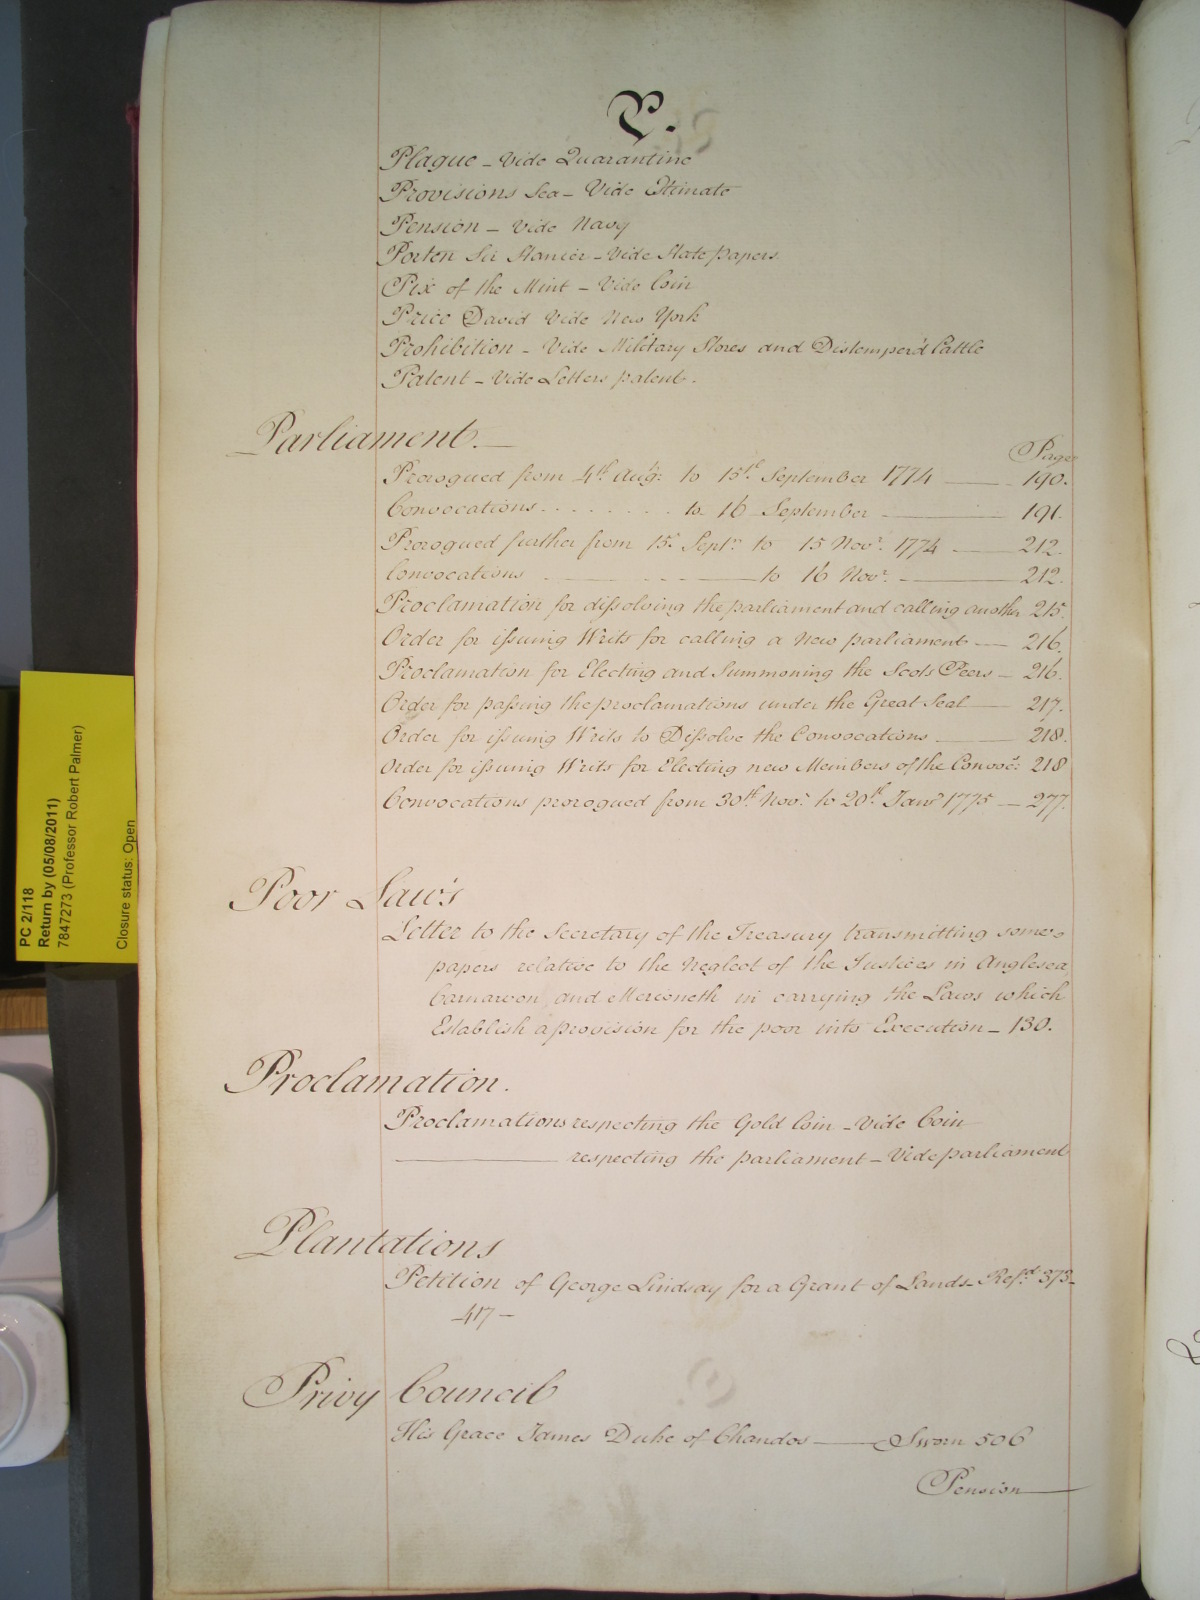 P.
Plague - Vide Quarantine
Provisions Sea - Vide Estimate
Pension - Vide Navy
Porten Sir Stanier - Vide State papers
Pix of the Mint - Vide Coin
Price David Vide New York
Prohibition - Vide Military Stores and Distemper'd Cattle
Patent - Vide Letters patent.
Parliament.
Page
Prorogued from 4th Augt: to 15th September 1774 190.
Convocations to 16 September 191.
Prorogued further from 15. Septr. to 15 Novr. 1774 212.
Convocations to 16 Novr. 212.
Proclamation for dissolving the parliament and calling another 215.
Order for issuing Writs for calling a New parliament 216.
Proclamation for Electing and Summoning the Scots Peers 216.
Order for passing the proclamations under the Great Seal 217.
Order for issuing Writs to Dissolve the Convocations 218.
Order for issuing Writs for Electing new Members of the Convocs: 218
Convocations prorogued from 30th Novr. to 20th Janry 1775 277.
Poor Laws
Letter to the Secretary of the Treasury transmitting some
papers relative to the Neglect of the Justices in Anglesea,
Carnarvon, and Merioneth in carrying the Laws which
Establish a provision for the poor into Execution - 130.
Proclamation.
Proclamations respecting the Gold Coin - Vide Coin
respecting the parliament - Vide parliament
Plantations
Petition of George Lindsay for a Grant of Lands - Refd. 373 -
417 -
Privy Council
His Grace James Duke of Chandos Sworn 506
Pension
PC 2/118
Return by (05/08/2011)
7847273 (Professor Robert Palmer)
Closure status: Open